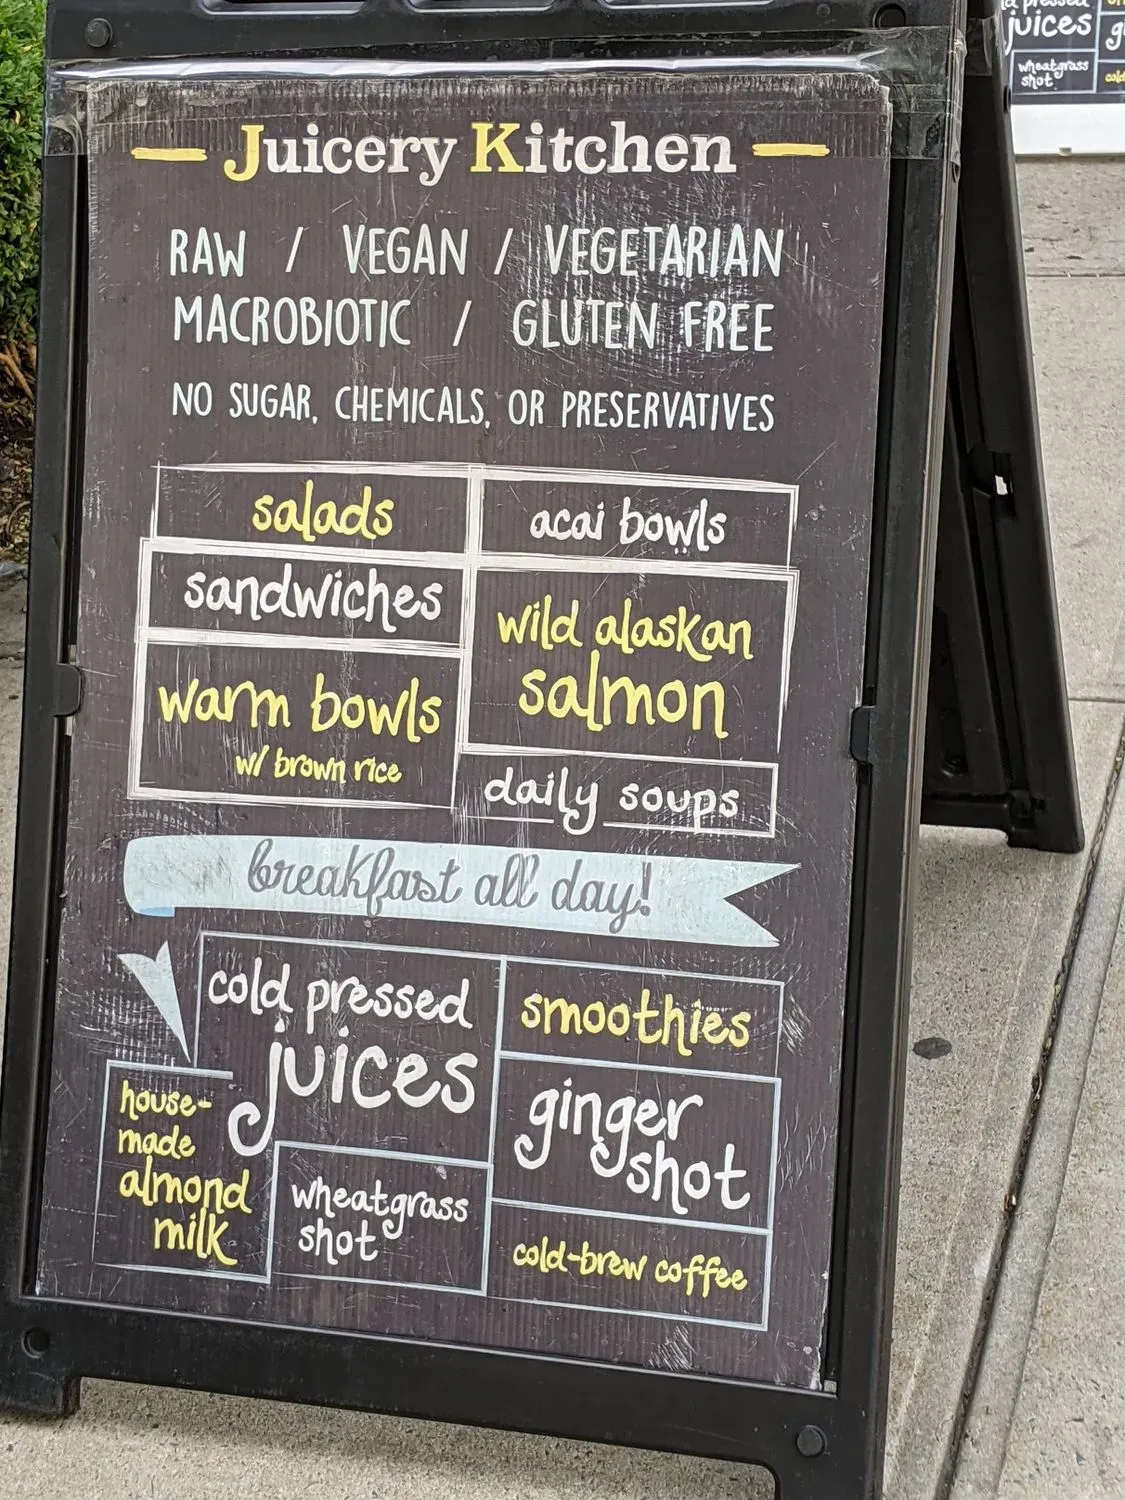 Juicery Kitchen
RAW / VEGAN / VEGETARIAN
MACROBIOTIC / GLUTEN FREE
NO SUGAR, CHEMICALS, OR PRESERVATIVES
salads
acai bowls
sandwiches
wild alaskan
salmon
warm bowls
w/ brown rice
daily soups
breakfast all day!
cold pressed
juices
smoothies
ginger
shot
house-
made
almond
milk
wheatgrass
shot
cold-brew coffee
pressed
juices
wheatgrass
shot